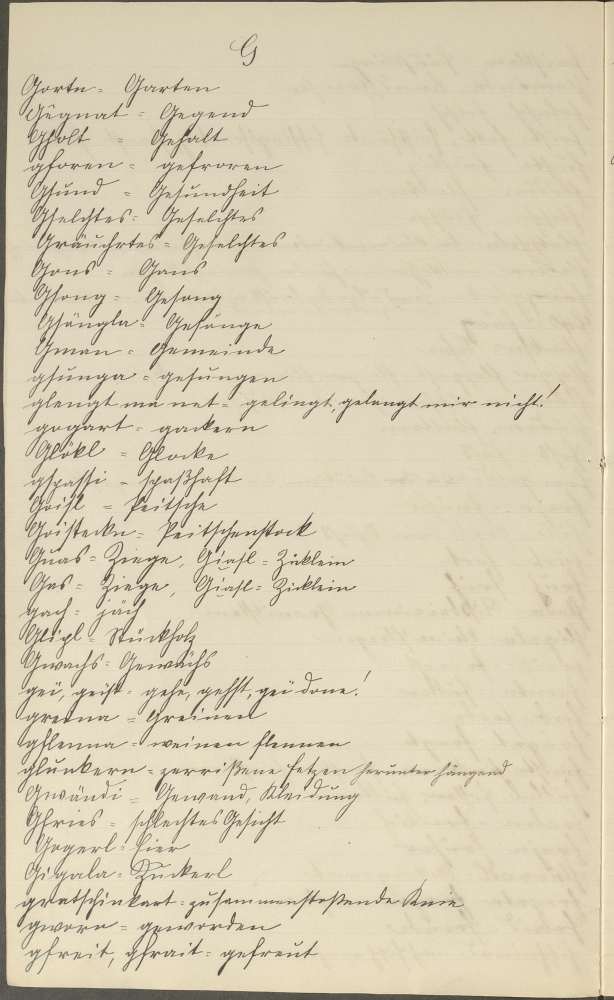 G
Gortn = Garten
Gegnat = Gegend
Gholt = Gehalt
gforen = gefroren
Gsund = Gesundheit
Gselchtes = Geselchtes
Gräuchrtes = Geselchtes
Gons = Gans
Gsong = Gesang
Gsangla = Gesänge
Gman = Gemeinde
gsunga = gesungen
glengt ma net = gelingt, gelangt mir nicht!
gogart = gackern
Glökl = Glocke
gspassi = spaßhaft
Goisl = Peitsche
Goisteckn = Peitschenstock
Guas = Ziege, Giasl = Zicklein
Gas = Ziege, Giasl = Zicklein
gach = jäch
Glipl = Stückholz
Gwachs = Gewächs
gei, geist = gehe, gehst, gei done!
greina = Greinen
gflenna = weinen flennen
glunkern = zerrißene Fetzen herunter hängend
Gwändi = Gewand, Kleidung
Gfries = schlechtes Gesicht
Gogerl = Eier
Gigala = Zuckerl
gratschinkart = zusammenstoßende Knie
gworn = geworden
gfreit, gfrait = gefreut